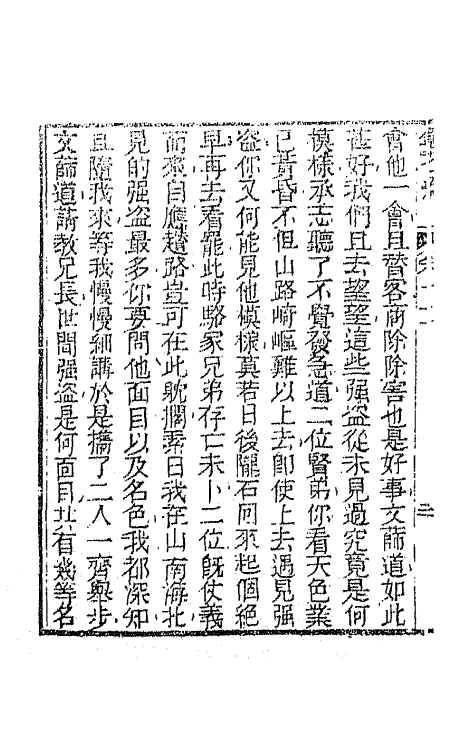 會他一會且替客商除除害也是好事文蒒道如此
甚好我們且去望望這些强盗從未見過究竟是何
模樣承志聽了不覺發急道二位賢弟你看天色業
已黃昏不但山路崎嶇難以上去卽使上去遇見强
盗你又何能見他模樣莫若日後隴石回來起個絕
早再去看罷此時駱家兄弟存亡未卜二位旣仗義
而來自應趲路豈可在此躭擱素日我在山南海北
見的强盗最多你要問他面目以及名色我都深知
且隨我來等我慢慢細講於是攜了二人一齊舉步
文蒒道請教兄長世間强盗是何面目共有幾等名